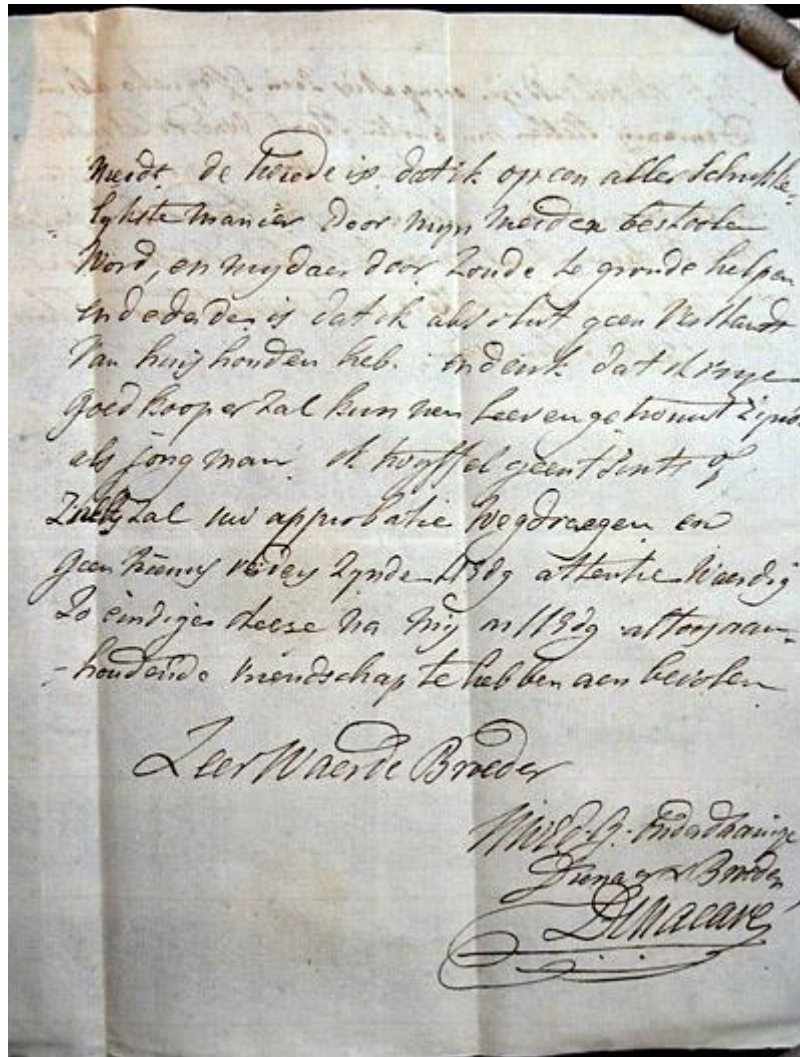 de tweede is dat ik op een aller schrikke-
lykste manier door myn meiden bestoolen
Word, en my daer door zoude te gronde helpen
en de derde is dat ik absolut geen verstandt
van huijshouden heb. en denk dat ik
goedkooper zal kunnen leeven getrouwt zijnde
als jong man. ik twyffel geensints of
zulks zal uw approbatie wegdraegen en
geen nieuws verders zynde UEdg attentie waerdig
Zo eindige deese na my in UEdg altoos aan-
-houdende vriendschap te hebben aen bevolen
Zeer Waerde Broeder
UWEd. G.
Dienaer & Broeder